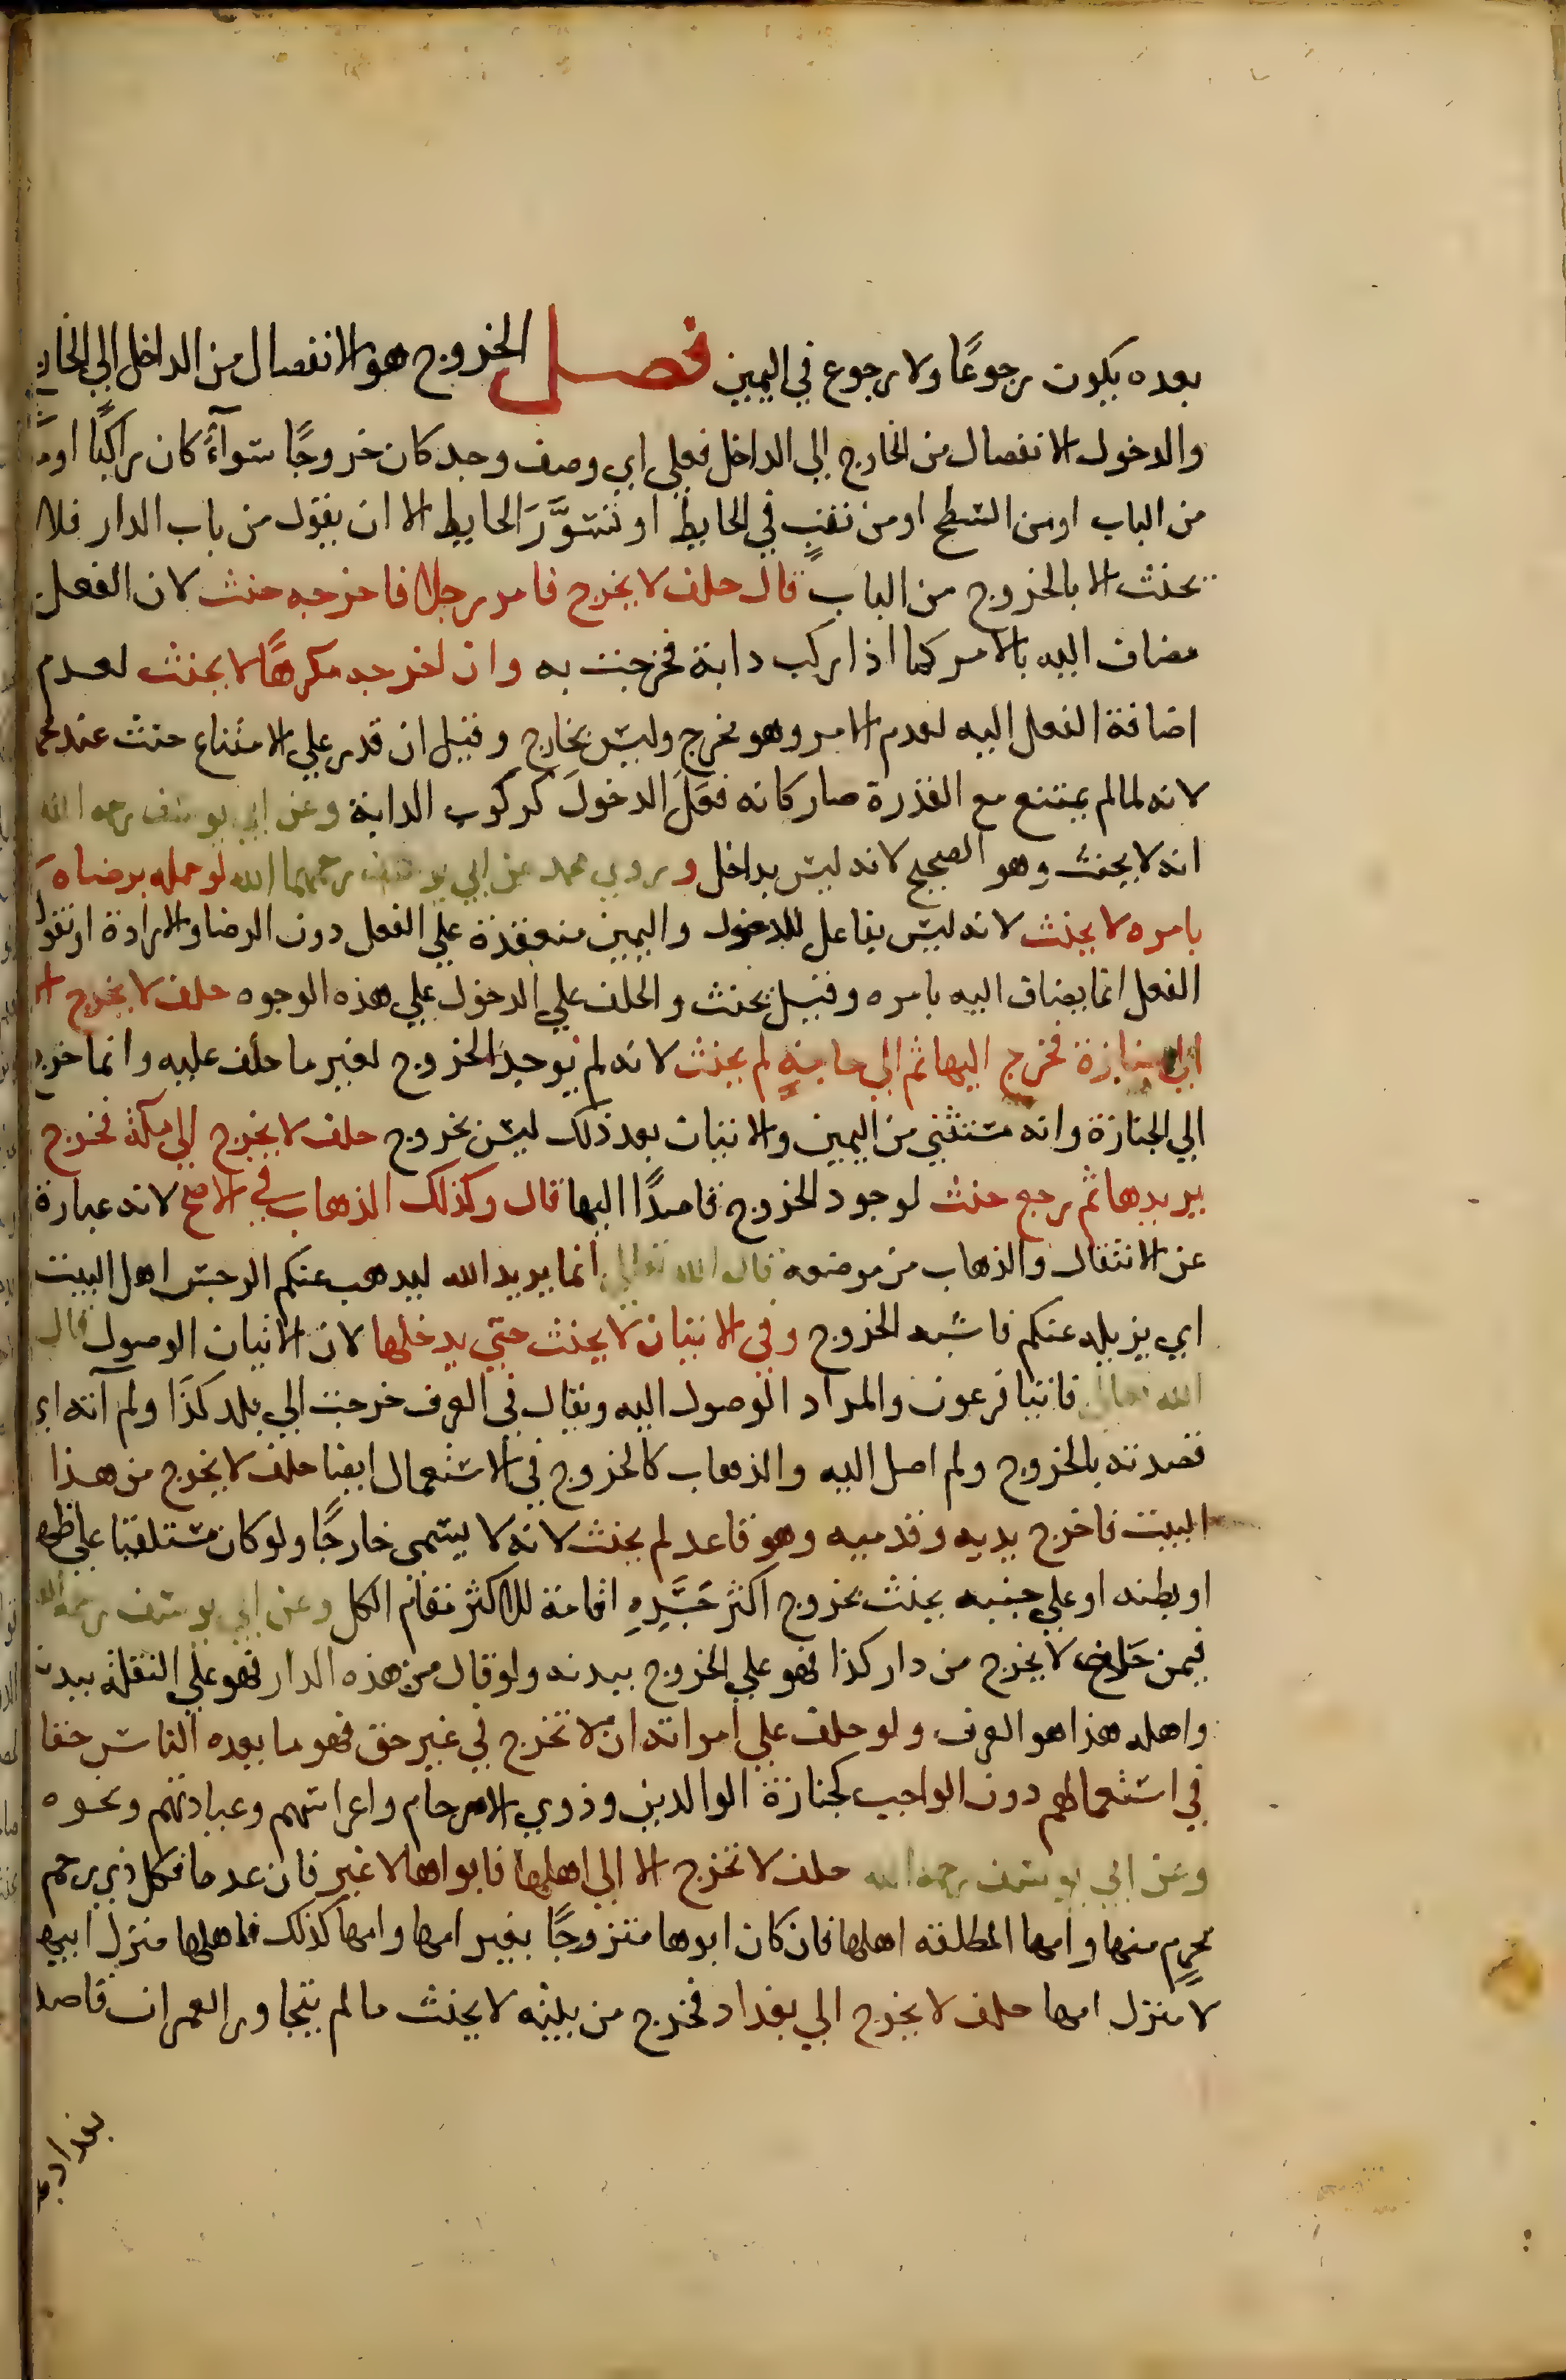 بعده يكون رجوعًا ولا رجوع في اليمين فصل الخروج هو الانفصال من الداخل الي الخارج
والدخول الانفصال من الخارج الي الداخل فعلي اي وصف وجد كان خروجًا سوآءً كان راكبًا او
من الباب او من السطح او من نقبٍ في الحايط او تسَوَّرَ الحايط الا ان يقول من باب الدار فلا
يحنث الا بالخروج من الباب قال حلف لا يخرج فامر رجلا فاخرجه حنث لان الفعل
مضاف اليه بالامر كما اذا ركب دابة فخرجت به وان اخرجه مكرهًا لا يحنث لعدم
اضافة الفعل اليه لعدم الامر وهو مخرج وليس بخارج وقيل ان قدر علي الامتناع حنث عند محمد
لانه لما لم يمتنع مع القدرة صار كانه فعَلَ الدخولَ كركوب الدابة وعن ابي يوسف رحمه الله
انه لا يحنث وهو الصحيح لانه ليس بداخل وروي محمد عن ابي يوسف رحمهما الله لو حمله برضاه لا
بامره لا يحنث لانه ليس بفاعل للدخول واليمين منعقدة علي الفعل دون الرضا والارادة او نقول
الفعل انما يضاف اليه بامره وقيل يحنث والحلف علي الدخول علي هذه الوجوه حلف لا يخرج الا
الي جنازة فخرج اليها ثم الي حاجةٍ لم يحنث لانه لم يوجد الخروج لغير ما حلف عليه وانما خرج
الي الجنازة وانه مستثني من اليمين والاتيان بعد ذلك ليس بخروج حلف لا يخرج الي مكة فخرج
يريدها ثم رجع حنث لوجود الخروج قاصدًا اليها قال وكذلك الذهاب في الاصح لانه عبارة
عن الانتقال والذهاب من موضعه قال الله تعالي انما يريد الله ليذهب عنكم الرجس اهل البيت
اي يزيله عنكم فاشبه الخروج وفي الاتيان لا يحنث حتي يدخلها لان الاتيان الوصول قال
الله تعالي فاتيا فرعون والمراد الوصول اليه ويقال في العرف خرجت الي بلد كذَا ولم آته اي
قصدته بالخروج ولم اصل اليه والذهاب كالخروج في الاستعمال ايضا حلف لا يخرج من هذا
البيت فاخرج يديه وقدميه وهو قاعد لم يحنث لانه لا يسمى خارجًا ولو كان مستلقيا علي ظهره
او بطنه او علي جنبه يحنث بخروج اكثر جَسَدِهِ اقامة للاكثر مقام الكل وعن ابي يوسف رحمه الله
فيمن حَلف لا يخرج من دار كذا فهو علي الخروج ببدنه ولو قال من هذه الدار فهو علي النقلة ببدنه
واهله هذا هو العرف ولو حلف علي امراته ان لا تخرج في غير حق فهو ما يعده الناس حقا
في استعمالهم دون الواجب كجنازة الوالدين وذوي الارحام واعراسهم وعيادتهم ونحوه
وعن ابي يوسف رحمه الله حلف لا تخرج الا الي اهلها فابواها لا غير فان عدما فكل ذي رحم
محرمٍ منها وامها المطلقه اهلها فان كان ابوها متزوجًا بغير امها وامها كذلك فاهلها منزل ابيها
لا منزل امها حلف لا يخرج الي بغداد فخرج من بيته لا يحنث ما لم يتجاوز العمران قاصدا
بغداد